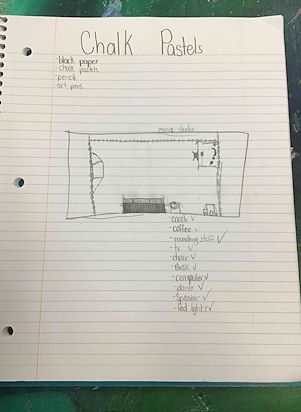 Chalk Pastels
-black paper
-chalk pastels
-pencil
-art pens
music studio
-couch ✓
-coffee ✓
-recording stuff ✓
-tv ✓
-chair ✓
-desk ✓
-computer ✓
-plants ✓
-speaker ✓
-led lights ✓